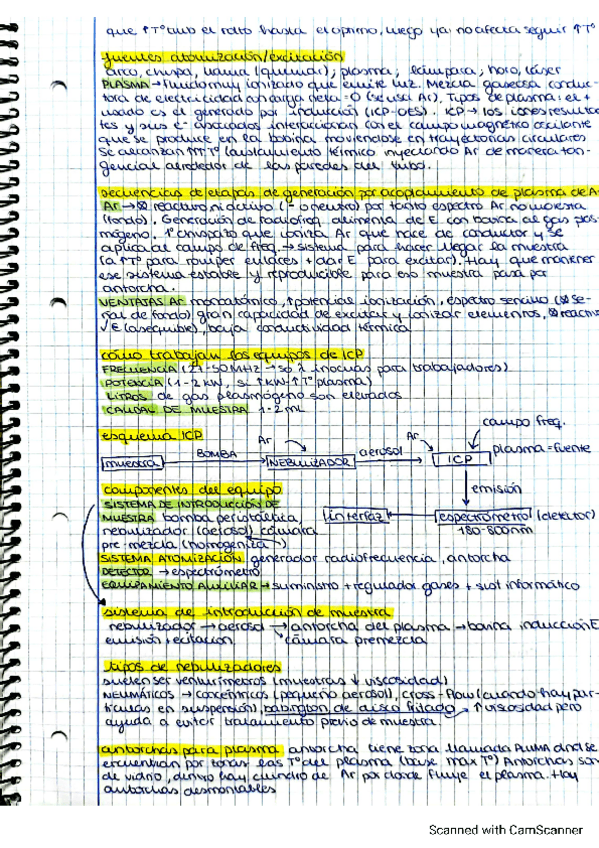 que ↑Tº amb el ratio hasta el optimo, luego ya no afecta seguir ↑Tº
fuentes atomización/excitación
arco, chispa, llama (quemar), plasma, lámpara, horo, láser
PLASMA → fluido muy ionizado que emite luz. Mezcla gaseosa conduc-
tora de electricidad con carga neta = 0 (se usa Ar). Tipos de plasma: el +
usado es el generado por inducción (ICP-OES). ICP → los iones resultan-
tes y sus e- asociados interaccionan con el campo magnético oscilante
que se produce en la bobina moviendose en trayectorias circulares
Se alcanzan ↑↑Tº (aislamiento térmico inyectando Ar de manera tan-
gencial alrededor de las paredes del tubo.
secuencias de etapas de generación por acoplamiento de plasma de Ar
Ar → reactivo ni activo (= o neutro) por tanto espectro Ar no molesta
(fondo). Generación de radiofreq. alimenta de E con bobina al gas plas-
mógeno. 1º chispazo que ioniza Ar que hace de conductor y se
aplica al campo de freq. → sistema para hacer llegar la muestra
(a ↑Tº para romper enlaces + dar E para excitar). Hay que mantener
ese sistema estable y reproducible para eso muestra pasa por
antorcha.
VENTAJAS Ar monoatómico, ↑potencial ionización, espectro sencillo (se-
ñal de fondo) gran capacidad de excitar y ionizar elementos, reactivo
√E (asequible), baja conductividad térmica
cómo trabajan los equipos de ICP
FRECUENCIA (21-50 MHz → so λ inocuas para trabajadores)
POTENCIA (1-2 kW, si ↑kW → ↑Tº plasma)
LITROS de gas plasmógeno son elevados
CAUDAL DE MUESTRA 1-2 mL
esquema ICP
Ar Ar campo freq.
muestra BOMBA NEBULIZADOR aerosol ICP plasma = fuente
emisión
componentes del equipo
SISTEMA DE INTRODUCCIÓN DE
MUESTRA bomba peristáltica, interfaz espectrómetro (detector)
nebulizador (aerosol) cámara 180-800nm
pre-mezcla (homogeniza)
SISTEMA ATOMIZACIÓN generador radiofrecuencia, antorcha
DETECTOR → espectrómetro
EQUIPAMIENTO AUXILIAR → suministro + regulador gases + sist informático
sistema de introducción de muestra
nebulizador → aerosol → antorcha del plasma → bobina inducción E
emisión + excitación cámara premezcla
tipos de nebulizadores
suelen ser venturímetros (muestras ↓ viscosidad)
NEUMÁTICOS → concéntricos (pequeño aerosol), cross-flow (cuando hay par-
tículas en suspensión), babington de disco fritado → ↑ viscosidad pero
ayuda a evitar tratamiento previo de muestra
antorchas para plasma antorcha tiene zona llamada PLUMA dnd se
encuentran por zonas las Tº del plasma (base max Tº) Antorchas son
de vidrio, dentro hay cilindro de Ar por donde fluye el plasma. Hay
antorchas desmontables
Scanned with CamScanner